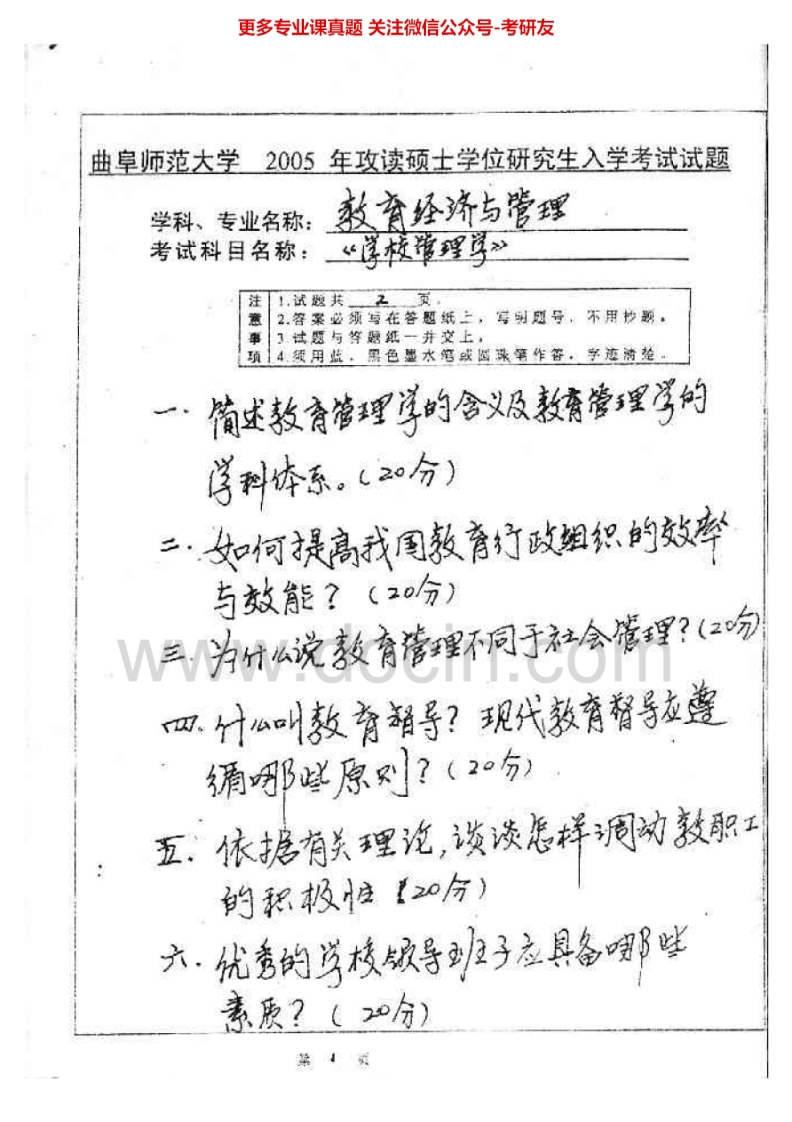 更多专业课真题 关注微信公众号-考研友
曲阜师范大学 2005 年攻读硕士学位研究生入学考试试题
学科、专业名称: 教育经济与管理
考试科目名称: 《学校管理学》
注意事项
1.试题共 2 页。
2.答案必须写在答题纸上，写明题号，不用抄题。
3.试题与答题纸一并交上。
4.须用蓝、黑色墨水笔或圆珠笔作答，字迹清楚。
一. 简述教育管理学的含义及教育管理学的
学科体系。(20分)
二. 如何提高我国教育行政组织的效率
与效能? (20分)
三. 为什么说教育管理不同于社会管理?(20分)
www.docin.com
四. 什么叫教育督导? 现代教育督导应遵
循哪些原则?(20分)
五. 依据有关理论,谈谈怎样调动教职工
的积极性 (20分)
六. 优秀的学校领导班子应具备哪些
素质? (20分)
第 1 页